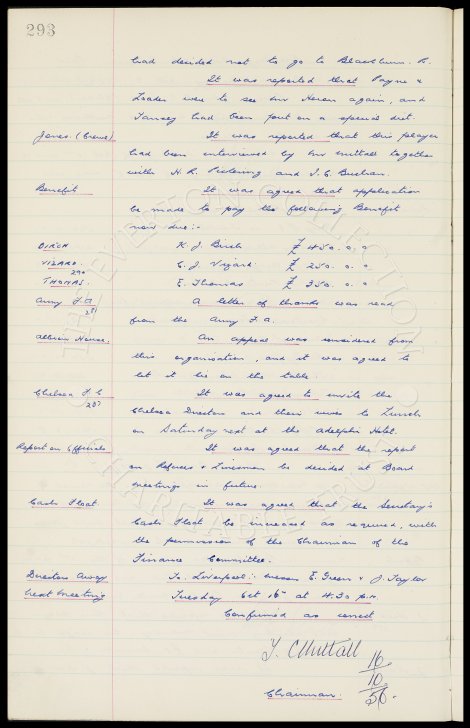 293
had decided not to go to Blackburn R.
It was reported that Payne &
Leader were to see Mr Heron again, and
Tansey had been put on a special diet.
Jones. (Crewe) It was reported that this player
had been interviewed by Mr Nuttall together
with H. R. Pickering and J. C. Buchan.
Benefit It was agreed that application
be made to pay the following Benefit
now due:-
BIRCH K. J. Birch £ 450. 0. 0
VIZARD. 290 C. J. Vizard £ 250. 0. 0
THOMAS. E. Thomas £ 350. 0. 0
Army F.A. 281 A letter of thanks was read
from the Army F.A.
Albion House. An appeal was considered from
this organisation, and it was agreed to
let it lie on the table.
Chelsea F.C 287 It was agreed to invite the
Chelsea Directors and their wives to Lunch
on Saturday next at the Adelphi Hotel.
Report on Officials It was agreed that the report
on Referees & Linesmen be decided at Board
meetings in future.
Cash Float It was agreed that the Secretary's
Cash Float be increased as required, with
the permission of the Chairman of the
Finance Committee.
Directors Away To. Liverpool:- Messrs E. Green & J. Taylor
Next Meeting Tuesday Oct 16th at 4.30 p.m.
Confirmed as correct
T. C Nuttall
16
10
56.
Chairman.
THE EVERTON COLLECTION
CHARITABLE TRUST